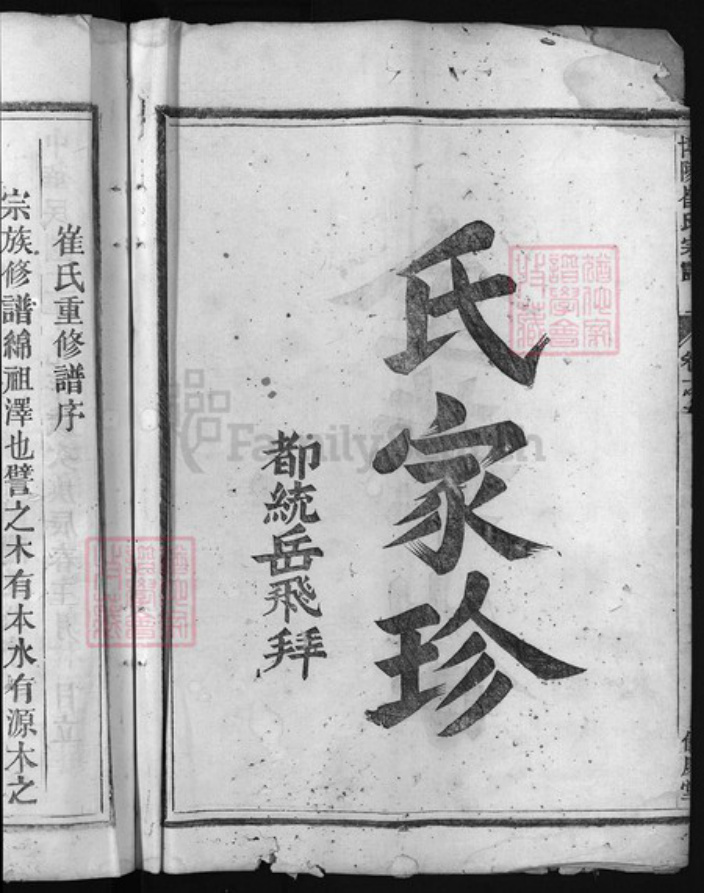 博陵崔氏宗譜
卷一
氏家珍
都統岳飛拜
崔氏重修譜序
宗族修譜綿祖澤也譬之木有本水有源木之